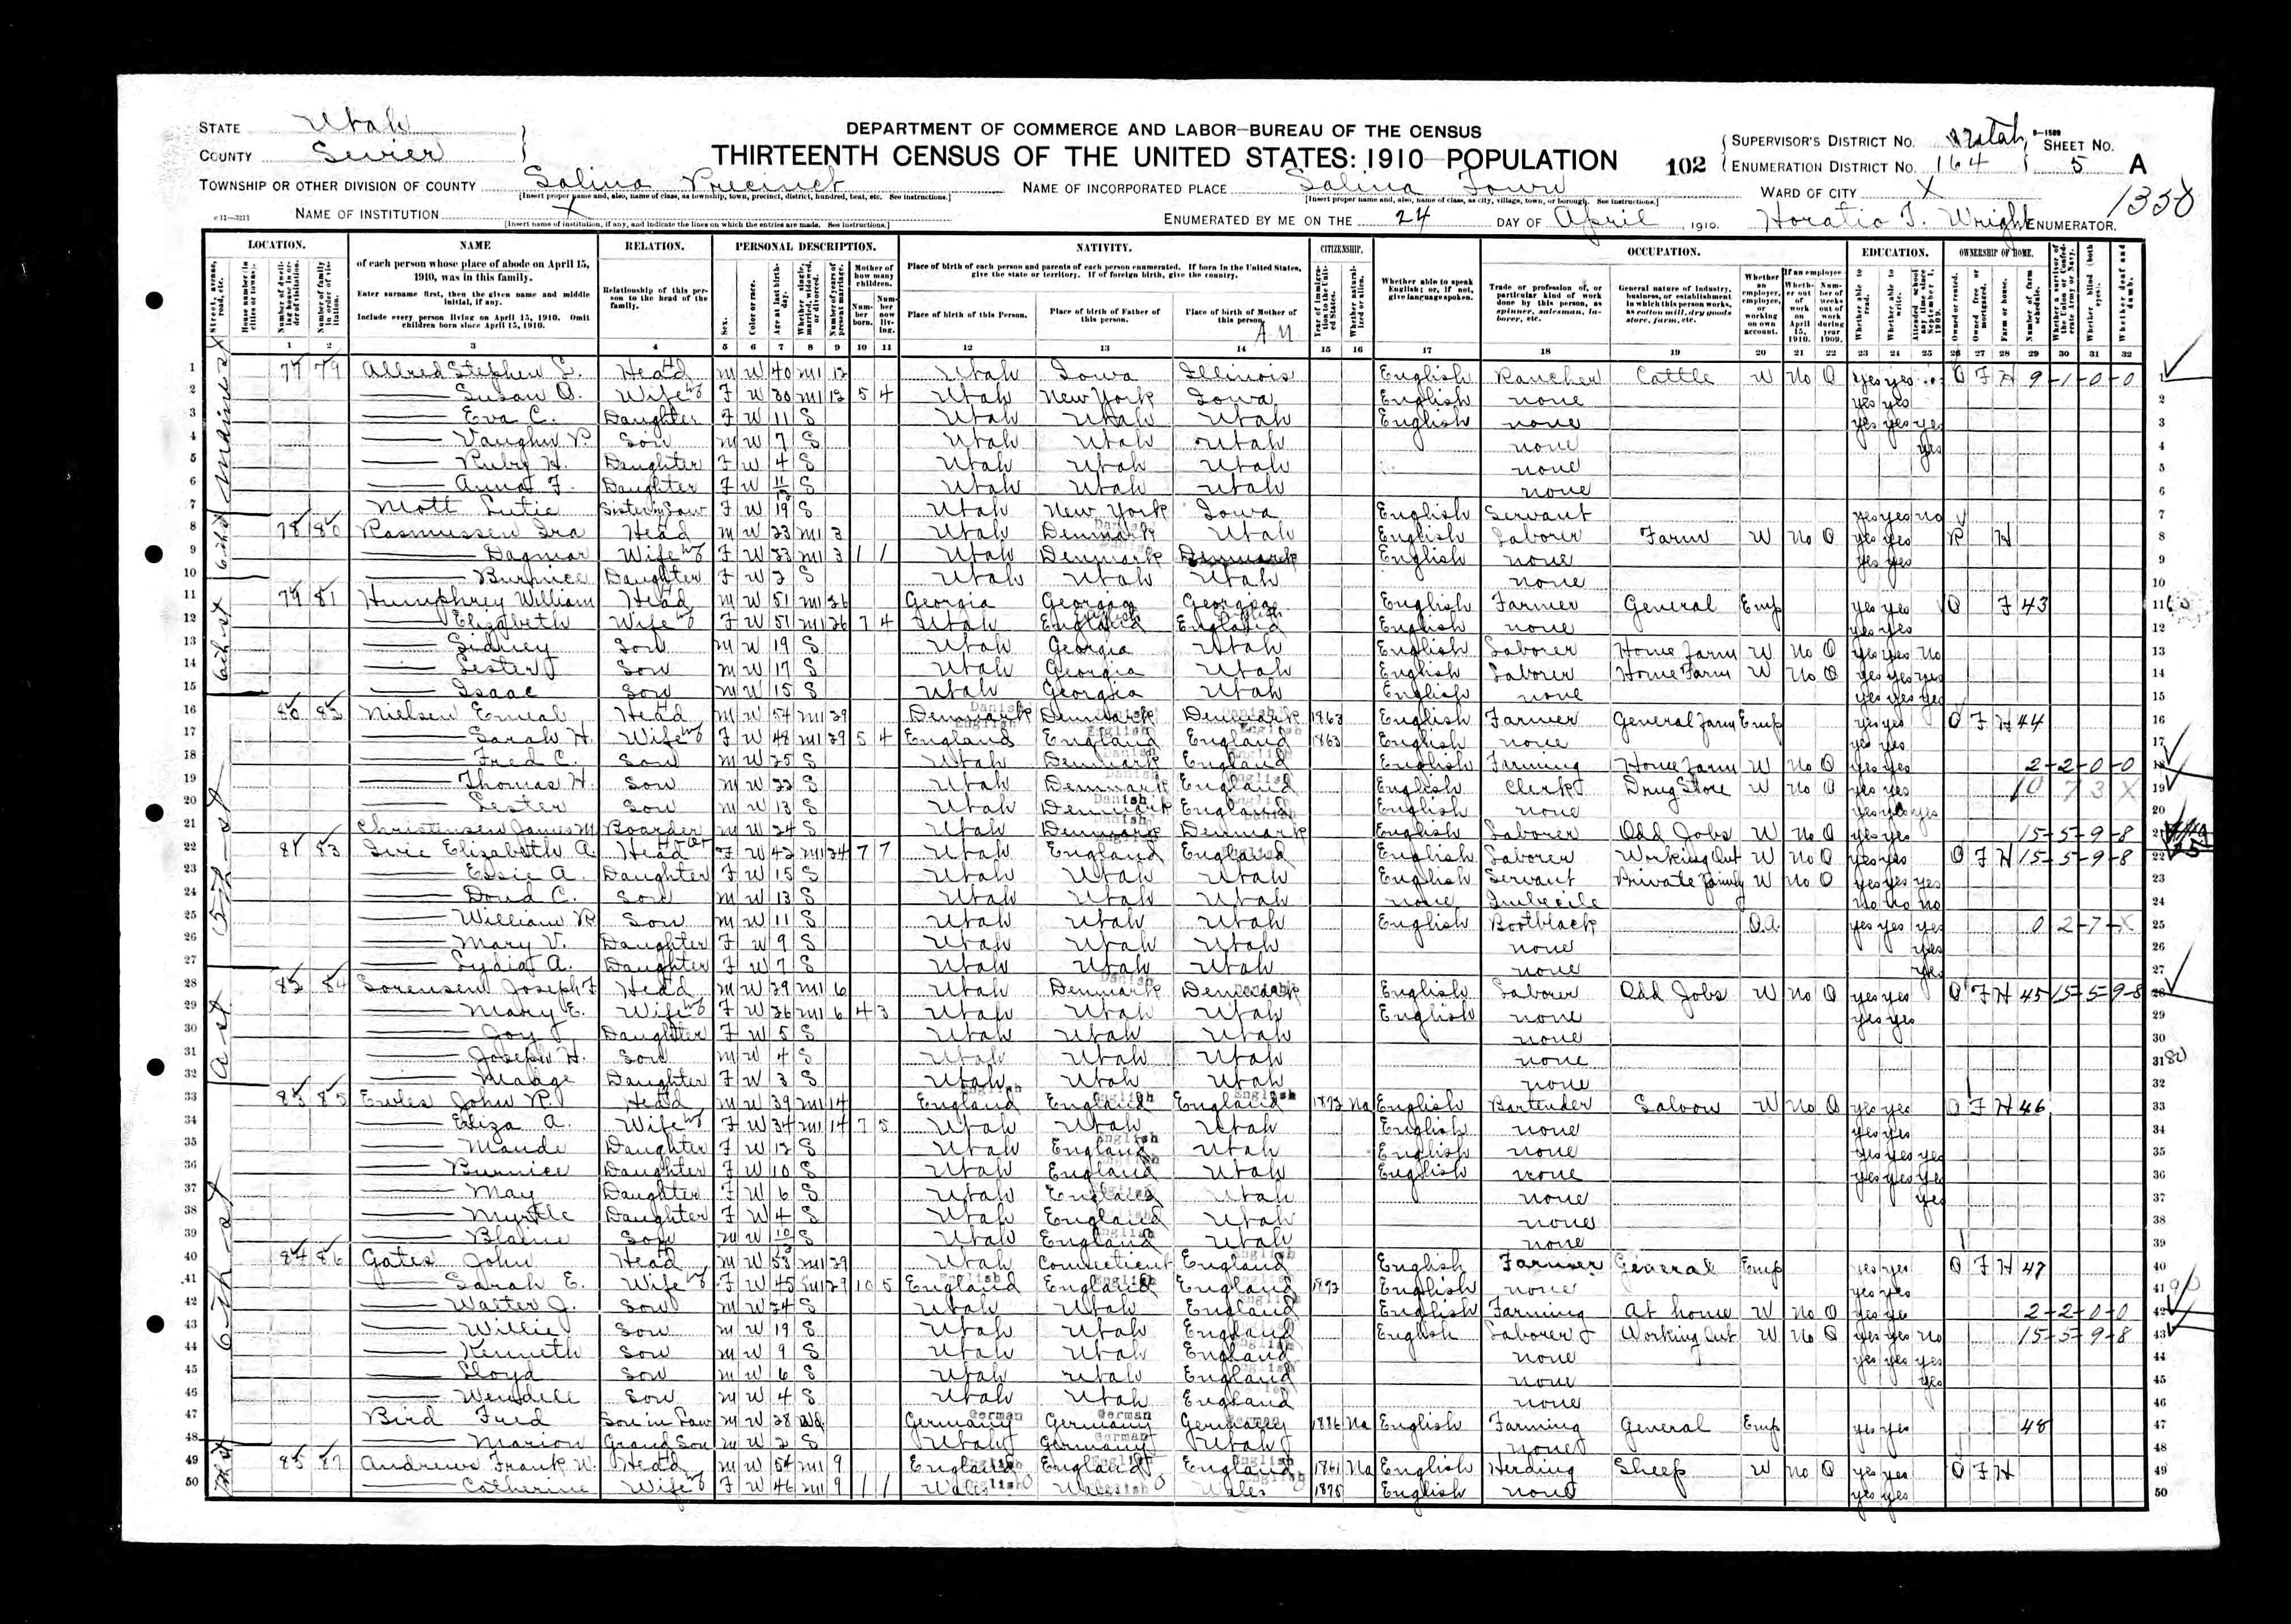 DEPARTMENT OF COMMERCE AND LABOR—BUREAU OF THE CENSUS
THIRTEENTH CENSUS OF THE UNITED STATES: 1910—POPULATION
STATE Utah
COUNTY Sevier
TOWNSHIP OR OTHER DIVISION OF COUNTY Salina Precinct
[Insert proper name and, also, name of class, as township, town, precinct, district, hundred, beat, etc. See instructions.]
NAME OF INSTITUTION X
[Insert name of institution, if any, and indicate the lines on which the entries are made. See instructions.]
NAME OF INCORPORATED PLACE Salina Town
[Insert proper name and, also, name of class, as city, village, town, or borough. See instructions.]
ENUMERATED BY ME ON THE 24 DAY OF April, 1910. Horatio T. Wright ENUMERATOR.
102
SUPERVISOR'S DISTRICT NO. Utah
ENUMERATION DISTRICT NO. 164
SHEET NO. 5 A
WARD OF CITY X
1350
LOCATION. NAME RELATION. PERSONAL DESCRIPTION. NATIVITY. CITIZENSHIP. OCCUPATION. EDUCATION. OWNERSHIP OF HOME.
of each person whose place of abode on April 15, 1910, was in this family.
Enter surname first, then the given name and middle initial, if any.
Include every person living on April 15, 1910. Omit children born since April 15, 1910.
Relationship of this person to the head of the family.
Place of birth of each person and parents of each person enumerated. If born in the United States, give the state or territory. If of foreign birth, give the country.
Place of birth of this Person. Place of birth of Father of this person. Place of birth of Mother of this person.
Whether able to speak English; or, if not, give language spoken.
1 77 79 Allred Stephen L. Head M W 40 M1 12 Utah Iowa Illinois English Rancher Cattle W No 0 yes yes O F H 9-1-0-0
2 Susan O. Wife F W 30 M1 12 5 4 Utah New York Iowa English none yes yes
3 Eva C. Daughter F W 11 S Utah Utah Utah English none yes yes yes
4 Vaughn R. Son M W 7 S Utah Utah Utah none yes
5 Ruby H. Daughter F W 4 S Utah Utah Utah none
6 Anna F. Daughter F W 11/12 S Utah Utah Utah none
7 Mott Lutie Sister in Law F W 19 S Utah New York Iowa English Servant yes yes no
8 78 80 Rasmussen Ira Head M W 23 M1 3 Utah Denmark Utah English Laborer Farm W No 0 yes yes R H
9 Dagmar Wife F W 23 M1 3 1 1 Utah Denmark Denmark English none yes yes
10 Burnice Daughter F W 2 S Utah Utah Utah none
11 79 81 Humphrey William Head M W 51 M1 26 Georgia Georgia Georgia English Farmer General Emp yes yes O F 43
12 Elizabeth Wife F W 51 M1 26 7 4 Utah England England English none yes yes
13 Sidney Son M W 19 S Utah Georgia Utah English Laborer Home Farm W No 0 yes yes no
14 Lester Son M W 17 S Utah Georgia Utah English Laborer Home Farm W No 0 yes yes yes
15 Isaac Son M W 15 S Utah Georgia Utah English none yes yes yes
16 80 82 Nielsen Emeal Head M W 54 M1 29 Denmark Denmark Denmark 1863 English Farmer General Farm Emp yes yes O F H 44
17 Sarah H. Wife F W 48 M1 29 5 4 England England England 1863 English none yes yes
18 Fred C. Son M W 25 S Utah Denmark England English Farming Home Farm W No 0 yes yes 2-2-0-0
19 Thomas H. Son M W 22 S Utah Denmark England English Clerk Drug Store W no 0 yes yes 10 7 3 X
20 Lester Son M W 13 S Utah Denmark England English none yes yes yes
21 Christensen James M. Boarder M W 24 S Utah Denmark Denmark English Laborer Odd Jobs W No 0 yes yes 15-5-9-8
22 81 83 Ivie Elizabeth A. Head F W 42 M1 24 7 7 Utah England England English Laborer Working Out W No 0 yes yes O F H 15-5-9-8
23 Elsie A. Daughter F W 15 S Utah Utah Utah English Servant Private Family W No 0 yes yes yes
24 Doud C. Son M W 13 S Utah Utah Utah none Imbecile no no no
25 William R. Son M W 11 S Utah Utah Utah English Bootblack O.A. yes yes yes 0 2-7-X
26 Mary V. Daughter F W 9 S Utah Utah Utah none yes
27 Lydia A. Daughter F W 7 S Utah Utah Utah none yes
28 82 84 Sorensen Joseph F. Head M W 29 M1 6 Utah Denmark Denmark English Laborer Odd Jobs W No 0 yes yes O F H 45 15-5-9-8
29 Mary E. Wife F W 26 M1 6 4 3 Utah Utah Utah English none yes yes
30 Joy Daughter F W 5 S Utah Utah Utah none
31 Joseph H. Son M W 4 S Utah Utah Utah none
32 Madge Daughter F W 3 S Utah Utah Utah none
33 83 85 Ewles John R. Head M W 39 M1 14 England England England 1872 Na English Bartender Saloon W No 0 yes yes O F H 46
34 Eliza A. Wife F W 34 M1 14 7 5 Utah Utah Utah English none yes yes
35 Maude Daughter F W 12 S Utah England Utah English none yes yes yes
36 Burnice Daughter F W 10 S Utah England Utah English none yes yes yes
37 May Daughter F W 6 S Utah England Utah none yes
38 Myrtle Daughter F W 4 S Utah England Utah none
39 Blaine Son M W 10/12 S Utah England Utah none
40 84 86 Gates John Head M W 53 M1 29 Utah Connecticut England English Farmer General Emp yes yes O F H 47
41 Sarah E. Wife F W 45 M1 29 10 5 England England England 1872 English none yes yes
42 Walter J. Son M W 24 S Utah Utah England English Farming At home W No 0 yes yes 2-2-0-0
43 Willie Son M W 19 S Utah Utah England English Laborer Working Out W No 0 yes yes no 15-5-9-8
44 Kenneth Son M W 9 S Utah Utah England none yes yes yes
45 Lloyd Son M W 6 S Utah Utah England none yes
46 Wendell Son M W 4 S Utah Utah England none
47 Bird Fred Son in Law M W 28 Wd Germany Germany Germany 1886 Na English Farming General Emp yes yes 48
48 Marion Grand Son M W 2 S Utah Germany Utah none
49 85 87 Andrews Frank W. Head M W 54 M1 9 England England England 1861 Na English Herding Sheep W no 0 yes yes O F H
50 Catherine Wife F W 46 M1 9 1 1 Wales Wales Wales 1875 English none yes yes